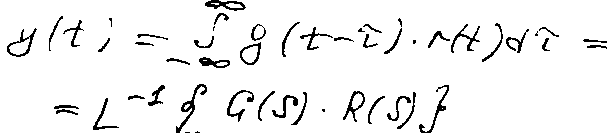 y(t) = ∫_{-∞}^{∞} g(t-τ)·r(t)dτ =
= L^{-1}{G(S)·R(S)}